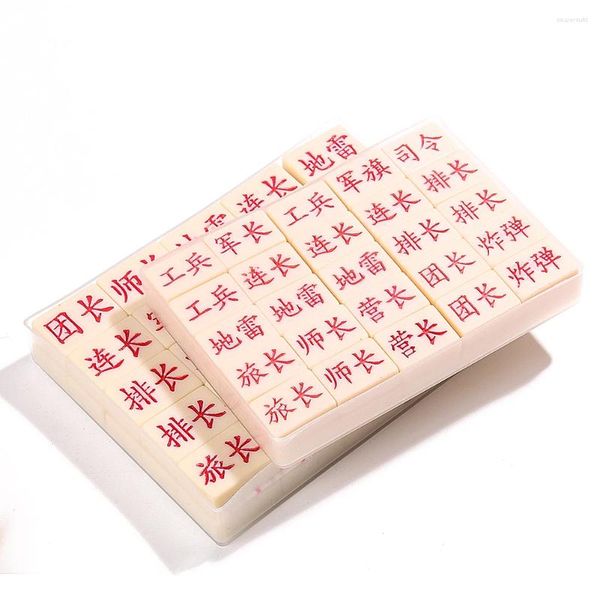 团长 师长 雷 连长 地雷
连长
排长
排长
旅长
工兵 军长 工兵 军旗 司令
工兵 连长 连长 连长 排长
地雷 地雷 地雷 排长 排长
旅长 师长 营长 团长 炸弹
旅长 师长 营长 团长 炸弹